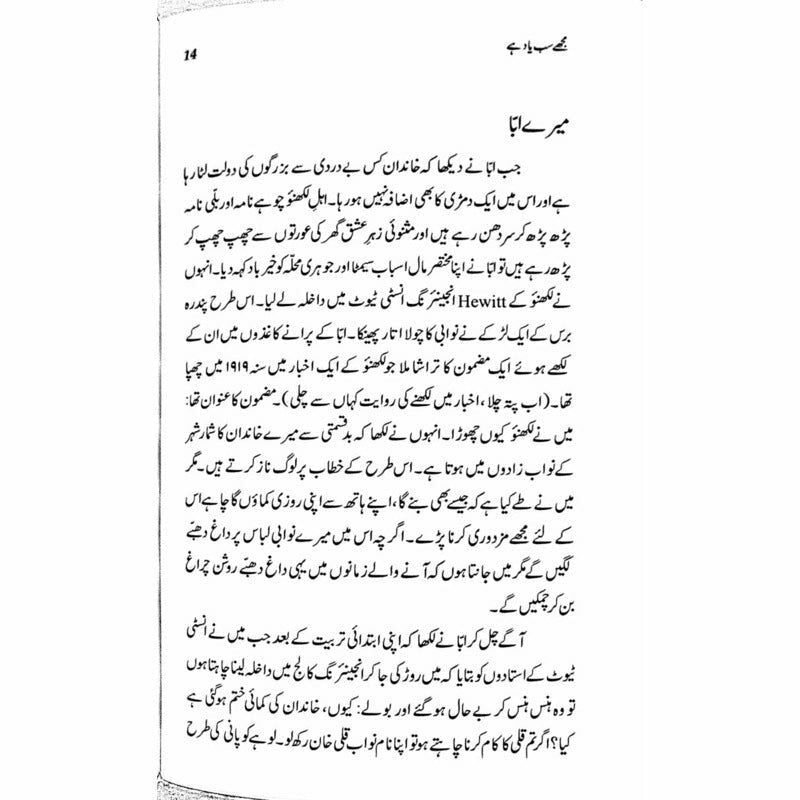 مجھے سب یاد ہے
14
میرے ابّا
جب ابّا نے دیکھا کہ خاندان کس بے دردی سے بزرگوں کی دولت لٹا رہا
ہے اور اس میں ایک دمڑی کا بھی اضافہ نہیں ہو رہا۔ اہلِ لکھنؤ چوہے نامہ اور بلّی نامہ
پڑھ پڑھ کر سر دھن رہے ہیں اور مثنوئی زہرِ عشق گھر کی عورتوں سے چھپ چھپ کر
پڑھ رہے ہیں تو ابّا نے اپنا مختصر مال اسباب سمیٹا اور جوہری محلّہ کو خیر باد کہہ دیا۔ انہوں
نے لکھنؤ کے Hewitt انجینئرنگ انسٹی ٹیوٹ میں داخلہ لے لیا۔ اس طرح پندرہ
برس کے ایک لڑکے نے نوابی کا چولا اتار پھینکا۔ ابّا کے پرانے کاغذوں میں ان کے
لکھے ہوئے ایک مضمون کا تراشا ملا جو لکھنؤ کے ایک اخبار میں سنہ ۱۹۱۹ میں چھپا
تھا۔ (اب پتہ چلا، اخبار میں لکھنے کی روایت کہاں سے چلی)۔ مضمون کا عنوان تھا:
میں نے لکھنؤ کیوں چھوڑا۔ انہوں نے لکھا کہ بدقسمتی سے میرے خاندان کا شمار شہر
کے نواب زادوں میں ہوتا ہے۔ اس طرح کے خطاب پر لوگ ناز کرتے ہیں۔ مگر
میں نے طے کیا ہے کہ جیسے بھی بنے گا، اپنے ہاتھ سے اپنی روزی کماؤں گا چاہے اس
کے لئے مجھے مزدوری کرنا پڑے۔ اگرچہ اس میں میرے نوابی لباس پر داغ دھبّے
لگیں گے مگر میں جانتا ہوں کہ آنے والے زمانوں میں یہی داغ دھبّے روشن چراغ
بن کر چمکیں گے۔
آگے چل کر ابّا نے لکھا کہ اپنی ابتدائی تربیت کے بعد جب میں نے انسٹی
ٹیوٹ کے استادوں کو بتایا کہ میں روڑکی جا کر انجینئرنگ کالج میں داخلہ لینا چاہتا ہوں
تو وہ ہنس ہنس کر بے حال ہو گئے اور بولے: کیوں، خاندان کی کمائی ختم ہو گئی ہے
کیا؟ اگر تم قلی کا کام کرنا چاہتے ہو تو اپنا نام نواب قلی خان رکھ لو۔ لوہے کو پانی کی طرح